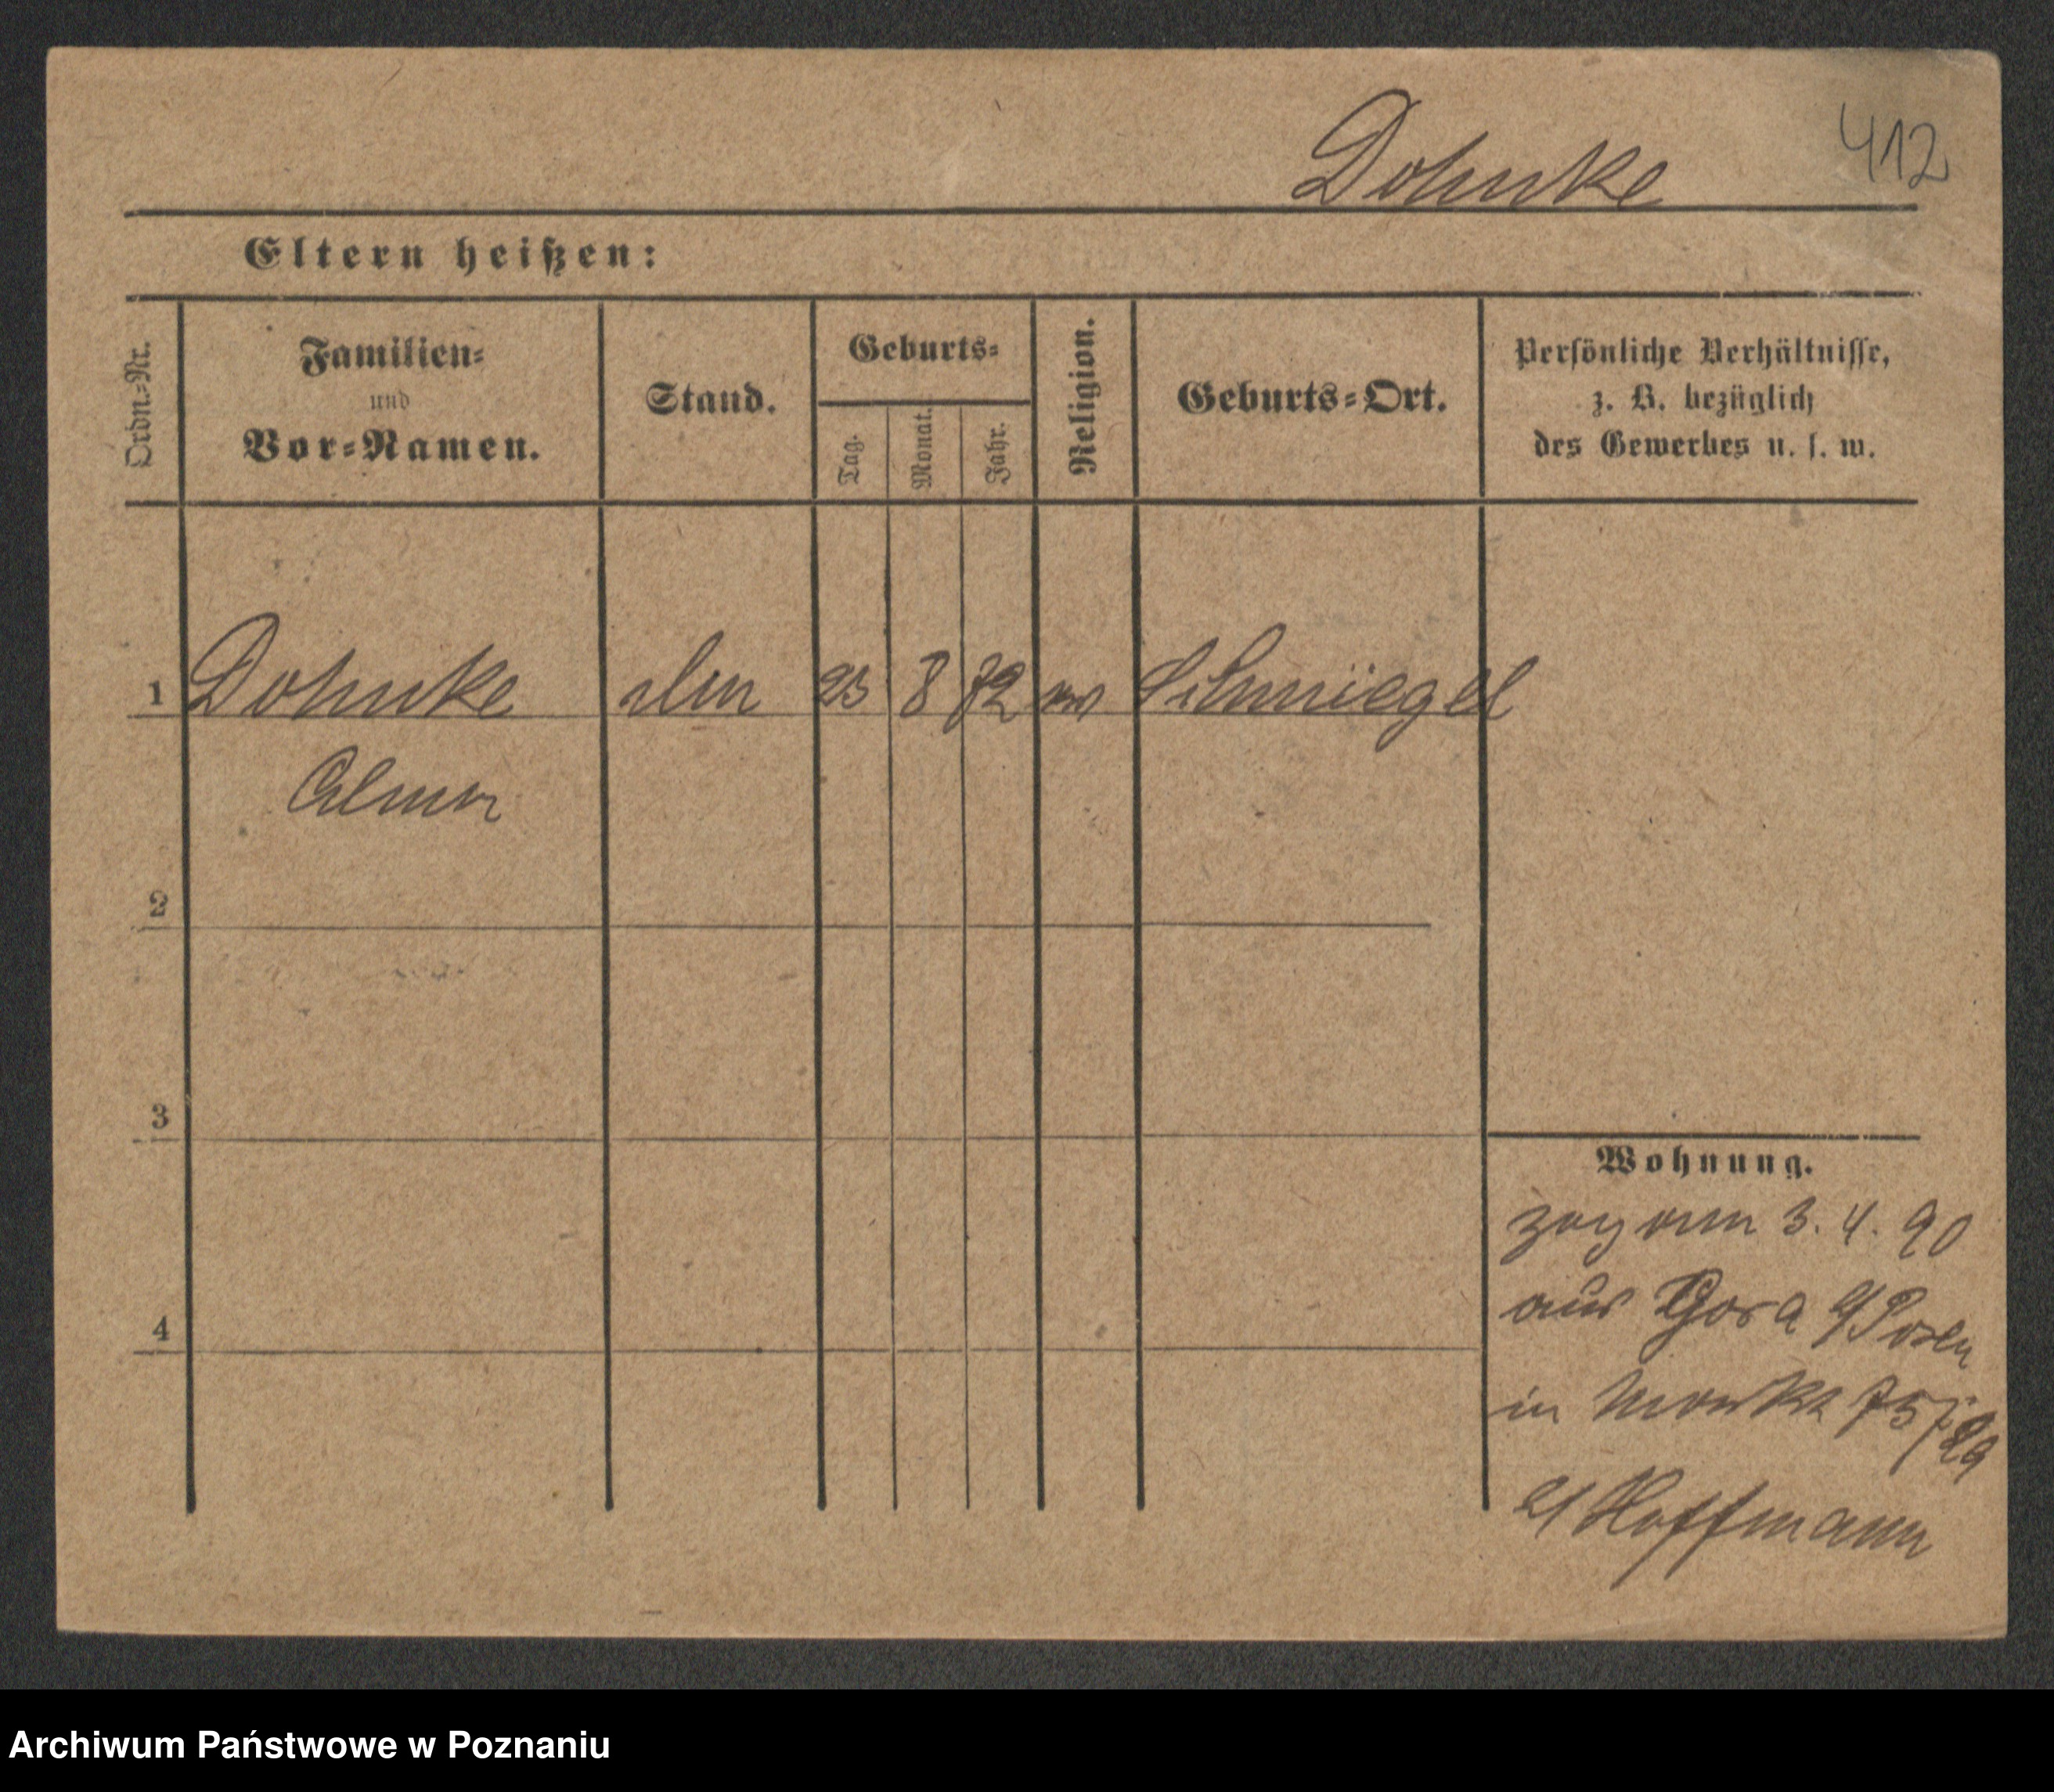 412
Dohnke
Eltern heißen:
Ordn.=Nr.
Familien=
und
Vor=Namen.
Stand.
Geburts=
Tag.
Monat.
Jahr.
Religion.
Geburts=Ort.
Persönliche Verhältnisse,
z. B. bezüglich
des Gewerbes u. s. w.
1 Dohnke 8 72 Schmiegel
2
3
4
Wohnung.
zog am 3. 4. 90
aus Gora Posen
in Markt 75
Hoffmann
Archiwum Państwowe w Poznaniu